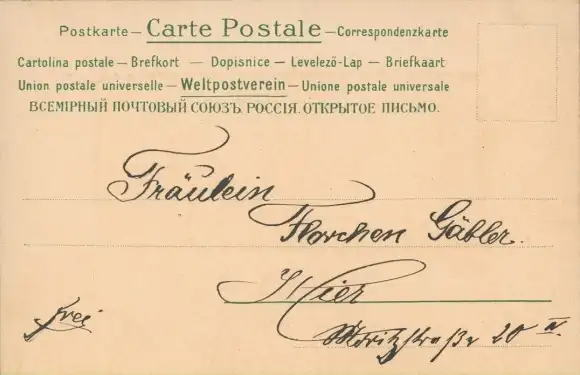 Postkarte – Carte Postale – Correspondenzkarte
Cartolina postale – Brefkort – Dopisnice – Levelező-Lap – Briefkaart
Union postale universelle – Weltpostverein – Unione postale universale
ВСЕМІРНЫЙ ПОЧТОВЫЙ СОЮЗЪ. РОССІЯ. ОТКРЫТОЕ ПИСЬМО.
Fräulein
Florchen Gäbler.
Hier
frei
Moritzstraße 20 II.